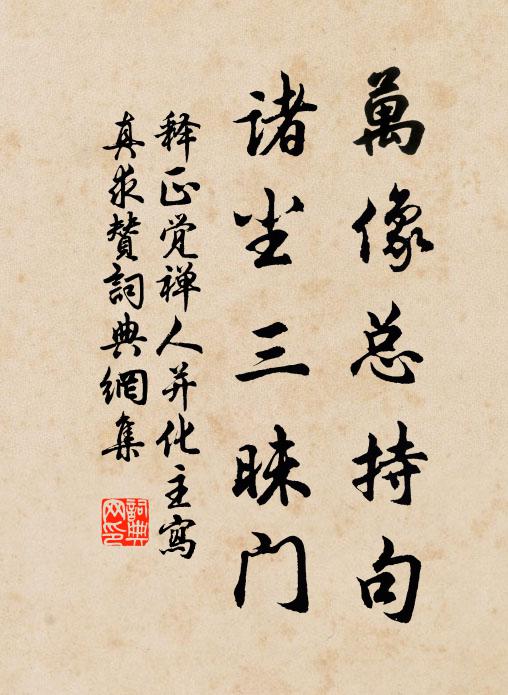 萬像总持句
诸尘三昧门
释正觉禅人并化主寫
真求赞詞典網集
詞典网印